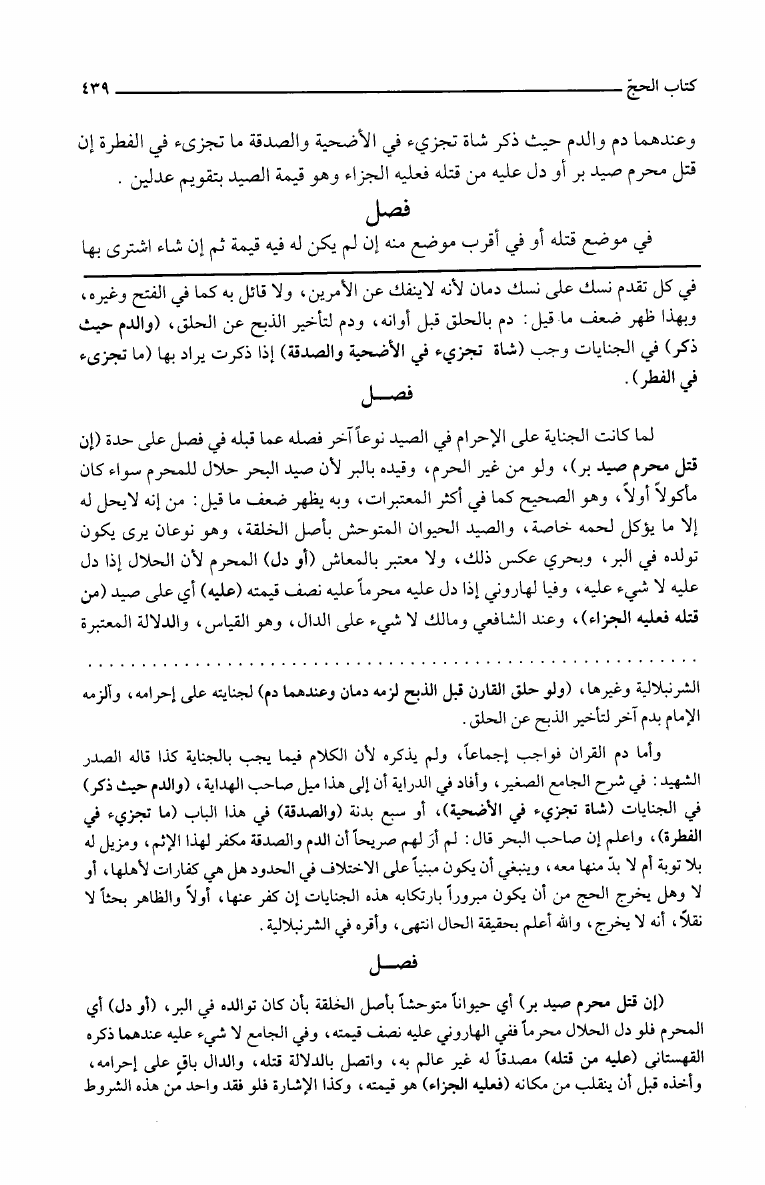 كتاب الحجّ ٤٣٩
وعندهما دم والدم حيث ذكر شاة تجزيء في الأضحية والصدقة ما تجزىء في الفطرة إن
قتل محرم صيد بر أو دل عليه من قتله فعليه الجزاء وهو قيمة الصيد بتقويم عدلين .
فصل
في موضع قتله أو في أقرب موضع منه إن لم يكن له فيه قيمة ثم إن شاء اشترى بها
في كل تقدم نسك على نسك دمان لأنه لاينفك عن الأمرين، ولا قائل به كما في الفتح وغيره،
وبهذا ظهر ضعف ما قيل: دم بالحلق قبل أوانه، ودم لتأخير الذبح عن الحلق، (والدم حيث
ذكر) في الجنايات وجب (شاة تجزيء في الأضحية والصدقة) إذا ذكرت يراد بها (ما تجزىء
في الفطر).
فصــل
لما كانت الجناية على الإحرام في الصيد نوعاً آخر فصله عما قبله في فصل على حدة (إن
قتل محرم صيد بر)، ولو من غير الحرم، وقيده بالبر لأن صيد البحر حلال للمحرم سواء كان
مأكولاً أولاً، وهو الصحيح كما في أكثر المعتبرات، وبه يظهر ضعف ما قيل: من إنه لايحل له
إلا ما يؤكل لحمه خاصة، والصيد الحيوان المتوحش بأصل الخلقة، وهو نوعان يرى يكون
تولده في البر، وبحري عكس ذلك، ولا معتبر بالمعاش (أو دل) المحرم لأن الحلال إذا دل
عليه لا شيء عليه، وفيا لهاروني إذا دل عليه محرماً عليه نصف قيمته (عليه) أي على صيد (من
قتله فعليه الجزاء)، وعند الشافعي ومالك لا شيء على الدال، وهو القياس، والدلالة المعتبرة
الشرنبلالية وغيرها، (ولو حلق القارن قبل الذبح لزمه دمان وعندهما دم) لجنايته على إحرامه، وألزمه
الإمام بدم آخر لتأخير الذبح عن الحلق.
وأما دم القران فواجب إجماعاً، ولم يذكره لأن الكلام فيما يجب بالجناية كذا قاله الصدر
الشهيد: في شرح الجامع الصغير، وأفاد في الدراية أن إلى هذا ميل صاحب الهداية، (والدم حيث ذكر)
في الجنايات (شاة تجزيء في الأضحية)، أو سبع بدنة (والصدقة) في هذا الباب (ما تجزيء في
الفطرة)، واعلم إن صاحب البحر قال: لم أرَ لهم صريحاً أن الدم والصدقة مكفر لهذا الإثم، ومزيل له
بلا توبة أم لا بدّ منها معه، وينبغي أن يكون مبنياً على الاختلاف في الحدود هل هي كفارات لأهلها، أو
لا وهل يخرج الحج من أن يكون مبروراً بارتكابه هذه الجنايات إن كفر عنها، أولاً والظاهر بحثاً لا
نقلاً، أنه لا يخرج، والله أعلم بحقيقة الحال انتهى، وأقره في الشرنبلالية.
فصــل
(إن قتل محرم صيد بر) أي حيواناً متوحشاً بأصل الخلقة بأن كان توالده في البر، (أو دل) أي
المحرم فلو دل الحلال محرماً ففي الهاروني عليه نصف قيمته، وفي الجامع لا شيء عليه عندهما ذكره
القهستاني (عليه من قتله) مصدقاً له غير عالم به، واتصل بالدلالة قتله، والدال باقٍ على إحرامه،
وأخذه قبل أن ينقلب من مكانه (فعليه الجزاء) هو قيمته، وكذا الإشارة فلو فقد واحد من هذه الشروط